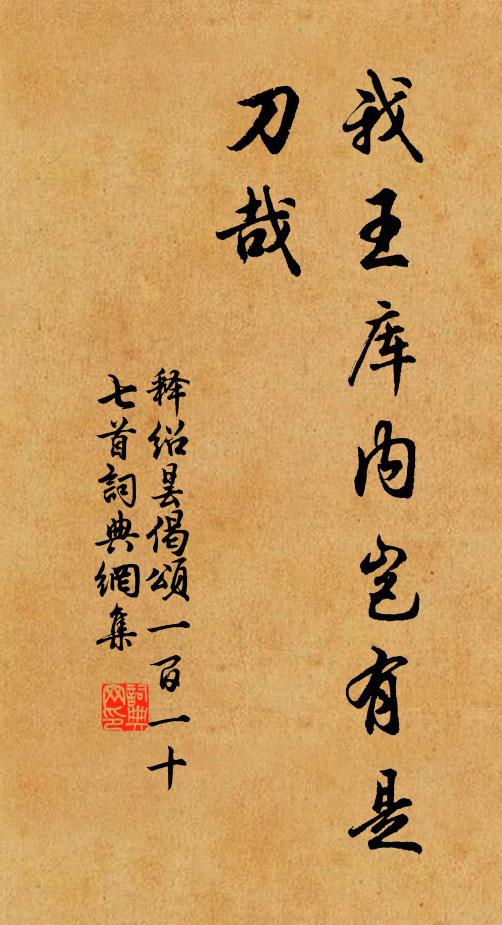 我王库内岂有是
刀哉
释绍昙偈颂一百一十
七首詞典網集
詞典
网印